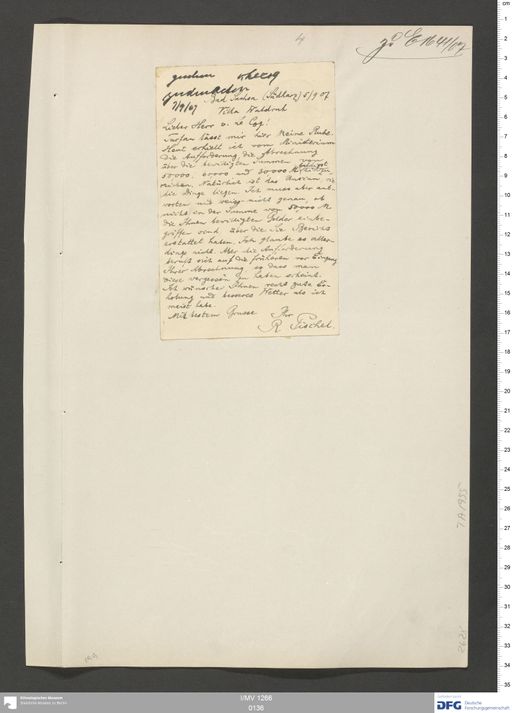 4
zu E 1644/07
gesehen
7/9/07
Bad Sachsa (Südharz) 5/9 07
Villa Waldruh
Lieber Herr v. Le Coq!
Turfan lässt mir hier keine Ruhe.
Heut erhielt ich vom Ministerium
die Aufforderung, die Abrechnung
über die bewilligten Summen von
50000, 60000 und 30000 M
reichen. Natürlich ist das
die Dinge liegen. Ich muss aber ant-
worten und weiss nicht genau, ob
nicht in der Summe von 50000 M
die Ihnen bewilligten Gelder einbe-
griffen sind, über die Sie Bericht
erstattet haben. Ich glaube es aller-
dings nicht. Aber die Aufforderung
beruft sich auf die früheren vor Eingang
Ihrer Abrechnung, so dass man
diese vergessen zu haben scheint.
Ich wünsche Ihnen recht gute Er-
holung und besseres Wetter als ich
meist habe.
Mit bestem Grusse Ihr
R Pischel.
I/MV 1266
0136
Ethnologisches Museum
Staatliche Museen zu Berlin
DFG Deutsche
Forschungsgemeinschaft